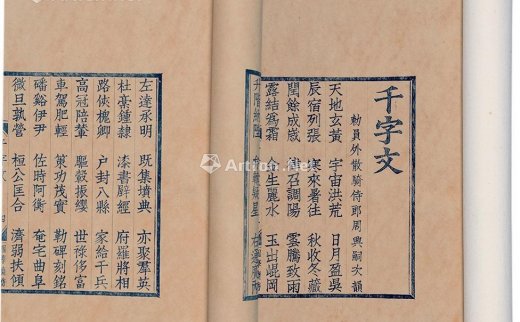 千字文
勅員外散騎侍郎周興嗣次韻
天地玄黃 宇宙洪荒 日月盈昃
辰宿列張 寒來暑往 秋收冬藏
閏餘成歲 召調陽 雲騰致雨
露結爲霜 金生麗水 玉出崐岡
左達承明 既集墳典 亦聚群英
杜稾鍾隸 漆書壁經 府羅將相
路俠槐卿 户封八縣 家給千兵
高冠陪輦 驅轂振纓 世祿侈富
車駕肥輕 策功茂實 勒碑刻銘
磻谿伊尹 佐時阿衡 奄宅曲阜
微旦孰營 桓公匡合 濟弱扶傾
千字文
Artron.Net